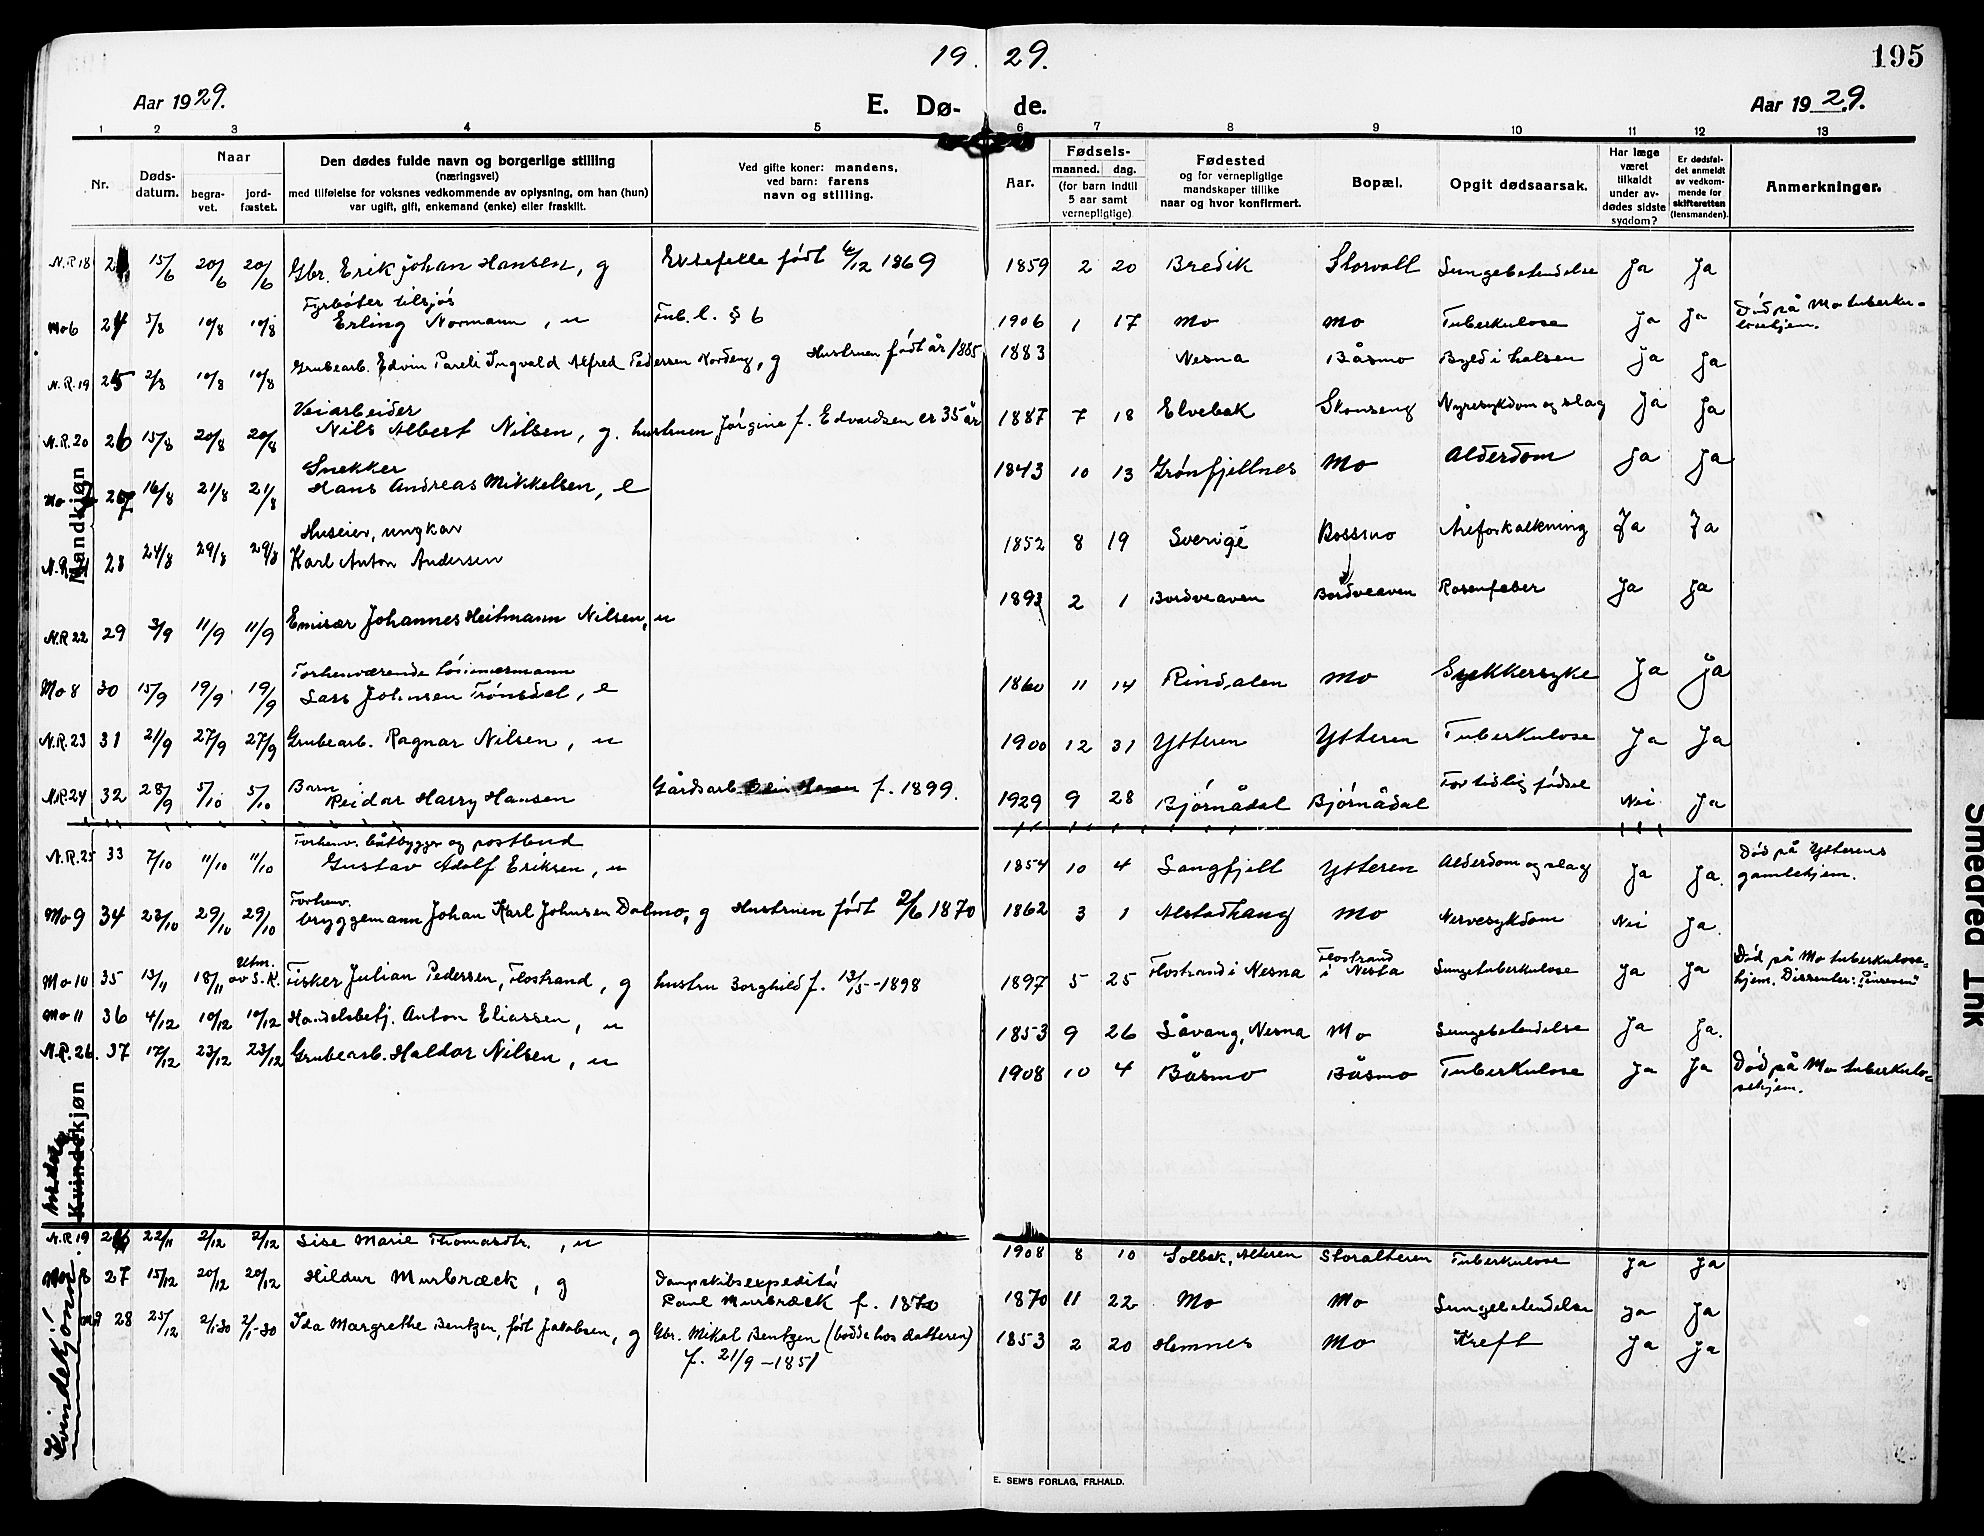 19 29.
195
Aar 1929.
E. Dø- de.
Aar 1929.
1 2 3 4 5 6 7 8 9 10 11 12 13
Nr.
Døds-
datum.
Naar
begra-
vet.
jord-
fæstet.
Den dødes fulde navn og borgerlige stilling
(næringsvei)
med tilføielse for voksnes vedkommende av oplysning, om han (hun)
var ugift, gift, enkemand (enke) eller fraskilt.
Ved gifte koner: mandens,
ved barn: farens
navn og stilling.
Aar.
Fødsels-
maaned. dag.
(for barn indtil
5 aar samt
vernepligtige)
Fødested
og for vernepligtige
mandskaper tillike
naar og hvor konfirmert.
Bopæl.
Opgit dødsaarsak.
Har læge
været
tilkaldt
under av-
dødes sidste
sygdom?
Er dødsfal-
det anmeldt
av vedkom-
mende for
skifteretten
(lensmanden).
Anmerkninger.
Mandkjøn
N.R 18 15/6 20/6 20/6 Gbr. Erik Johan Hansen, g født 6/12 1869 1859 2 20 Bredik Storvoll Lungebetendelse Ja Ja
Fyrbøter tilsjøs
Mo 6 24 5/8 10/8 10/8 Erling Normann, u Fub. l. § 6 1906 1 17 Mo Mo Tuberkulose Ja Ja Død på Mo tuberku-
losehjem.
N.R. 19 25 2/8 10/8 10/8 Grubearb. Edvin Pareli Ingvald Alfred Pedersen Nordeng, g Hustruen født år 1885 1883 Nesna Båsmo Byld i halsen Ja Ja
Veiarbeider
N.R. 20 26 15/8 20/8 20/8 Nils Albert Nilsen, g. hustruen Jørgine f. Edvardsen er 35 år 1887 7 18 Elvebak Skonseng Nyresykdom og slag Ja Ja
Snekker
Mo 7 27 16/8 21/8 21/8 Hans Andreas Mikkelsen, e 1843 10 13 Grønfjellnes Mo Alderdom Ja Ja
Huseier, ungkar
N.R. 21 28 24/8 29/8 29/8 Karl Anton Andersen 1852 8 19 Sverige Bossmo Åreforkalkning Ja Ja
N.R 22 29 3/9 11/9 11/9 Emisær Johannes Heitmann Nilsen, u 1893 2 1 Bordveaven Bordveaven Rosenfeber Ja Ja
Forhenværende
Mo 8 30 15/9 19/9 19/9 Lars Johnsen Trønsdal, e 1860 11 14 Rindalen Mo Sukkersyke Ja Ja
N.R. 23 31 21/9 27/9 27/9 Grubearb. Ragnar Nilsen, u 1900 12 31 Ytteren Ytteren Tuberkulose Ja Ja
Barn
N.R 24 32 28/9 5/10 5/10 Reidar Harry Hansen Gårdsarb. f. 1899. 1929 9 28 Bjørnådal Bjørnådal For tidlig fødsel Nei Ja
Forhenv. båtbygger og postbud
N.R. 25 33 7/10 11/10 11/10 Gustav Adolf Eriksen, u 1854 10 4 Langfjell Ytteren Alderdom og slag Ja Ja. Død på Ytterens
gamlehjem.
Forhenv.
Mo 9 34 23/10 29/10 29/10 bryggemann Johan Karl Johnsen Dalmo, g Hustruen født 2/6 1870 1862 3 1 Alstadhaug Mo Nervesykdom Nei Ja.
Utm.
Mo 10 35 13/11 18/11 av S.K. Fisker Julian Pedersen, Flostrand, g hustru Borghild f. 13/5-1898 1897 5 25 Flostrand i Nesna Flostrand
i Nesna Lungetuberkulose Ja Ja Død på Mo tuberkulose-
hjem. Dissenter:
Mo 11 36 4/12 10/12 10/12 Handelsbetj. Anton Eliassen, u 1853 9 26 Låvang, Nesna Mo Lungebetendelse Ja Ja.
N.R. 26. 37 17/12 23/12 23/12 Grubearb. Haldor Nilsen, u 1908 10 4 Båsmo Båsmo Tuberkulose Ja Ja Død på Mo tuberkulo-
sehjem.
Kvindekjøn
Kvindekjønn.
N.R 19 26 22/11 2/12 2/12 Lise Marie Thomasdtr., u 1908 8 10 Solbak, Alteren Storalteren Tuberkulose Ja Ja
Mo 8 27 15/12 20/12 20/12 Hildur Murbræck, g Dampskibsexpeditør
Paul Murbræck f. 1870 1870 11 22 Mo Mo Lungebetendelse Ja Ja
28 25/12 2/1-30 2/1-30 Ida Margrethe Bentzen, født Jakobsen, g Gbr. Mikal Bentzen (bodde hos datteren)
f. 21/9-1851 1853 2 20 Hemnes Mo Kreft Ja Ja
E. SEM'S FORLAG, FR.HALD.
Smedred Tuk